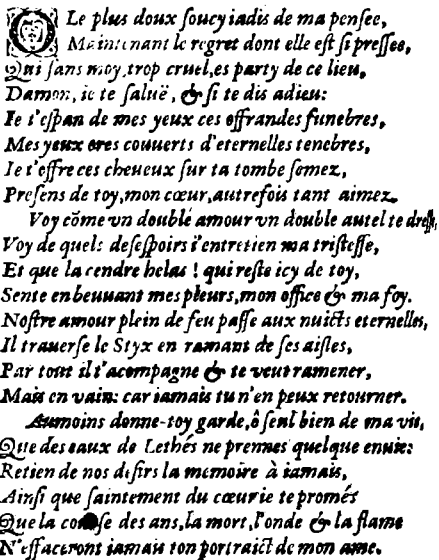 O Le plus doux soucy iadis de ma pensee,
Maintenant le regret dont elle est si pressee,
Qui sans moy, trop cruel, es party de ce lieu,
Damon, ie te saluë, & si te dis adieu:
Ie t'espan de mes yeux ces offrandes funebres,
Mes yeux ores couuerts d'eternelles tenebres,
Ie t'offre ces cheueux sur ta tombe semez,
Presens de toy, mon cœur, autrefois tant aimez.
Voy cõme vn double amour vn double autel te dresse,
Voy de quels desespoirs i'entretien ma tristesse,
Et que la cendre helas ! qui reste icy de toy,
Sente enbeuuant mes pleurs, mon office & ma foy.
Nostre amour plein de feu passe aux nuicts eternelles,
Il trauerse le Styx en ramant de ses aisles,
Par tout il t'acompagne & te veut ramener,
Mais en vain: car iamais tu n'en peux retourner.
Aumoins donne-toy garde, ô seul bien de ma vie,
Que des eaux de Lethés ne prennes quelque enuie:
Retien de nos desirs la memoire à iamais,
Ainsi que saintement du cœur ie te promés
Que la course des ans, la mort, l'onde & la flame
N'effaceront iamais ton portraict de mon ame.